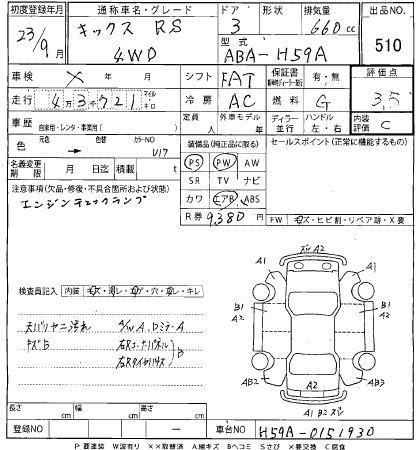 初度登録年月 通称車名・グレード ドア 形状 排気量 出品NO.
23/9月 キックス RS 4WD 3 660cc 510
型式 ABA-H59A
車検 × 年 月 シフト FAT 保証書 有・無 評価点
走行 4万3千721 マイル キロ 冷房 AC 燃料 G 3.5
車歴 自家用・レンタ・事業用( ) 定員 人 外車モデル 年 ディーラー 並行 ハンドル 左・右 内装評価 C
色 元色 → 色替 カラーNO V17
装備品(純正品に限る) セールスポイント(正常に機能するもの)
名義変更期限 月 日迄 積載 t
PS PW AW
SR TV ナビ
カワ エアB ABS
R券 9380円
注意事項(欠品・修復・不具合箇所および状態)
エンジンチェックランプ
FW キズ・ヒビ割・リペア跡・X要
検査員記入 内装 キズ・汚レ・コゲ・穴・ヌレ・キレ
天バリヤニ汚れ
キズB
右リヤタイヤハウス
ズレ A2
A1 A1
B1 A2 B1 A2
AB2 A2 AB3
A1 B2 ズレ
長さ cm 幅 cm 高さ cm
登録NO ー 車台NO H59A-0151930
P要塗装 W波有り ××取替済 A線キズ Bヘコミ Sさび ×要交換 C腐食